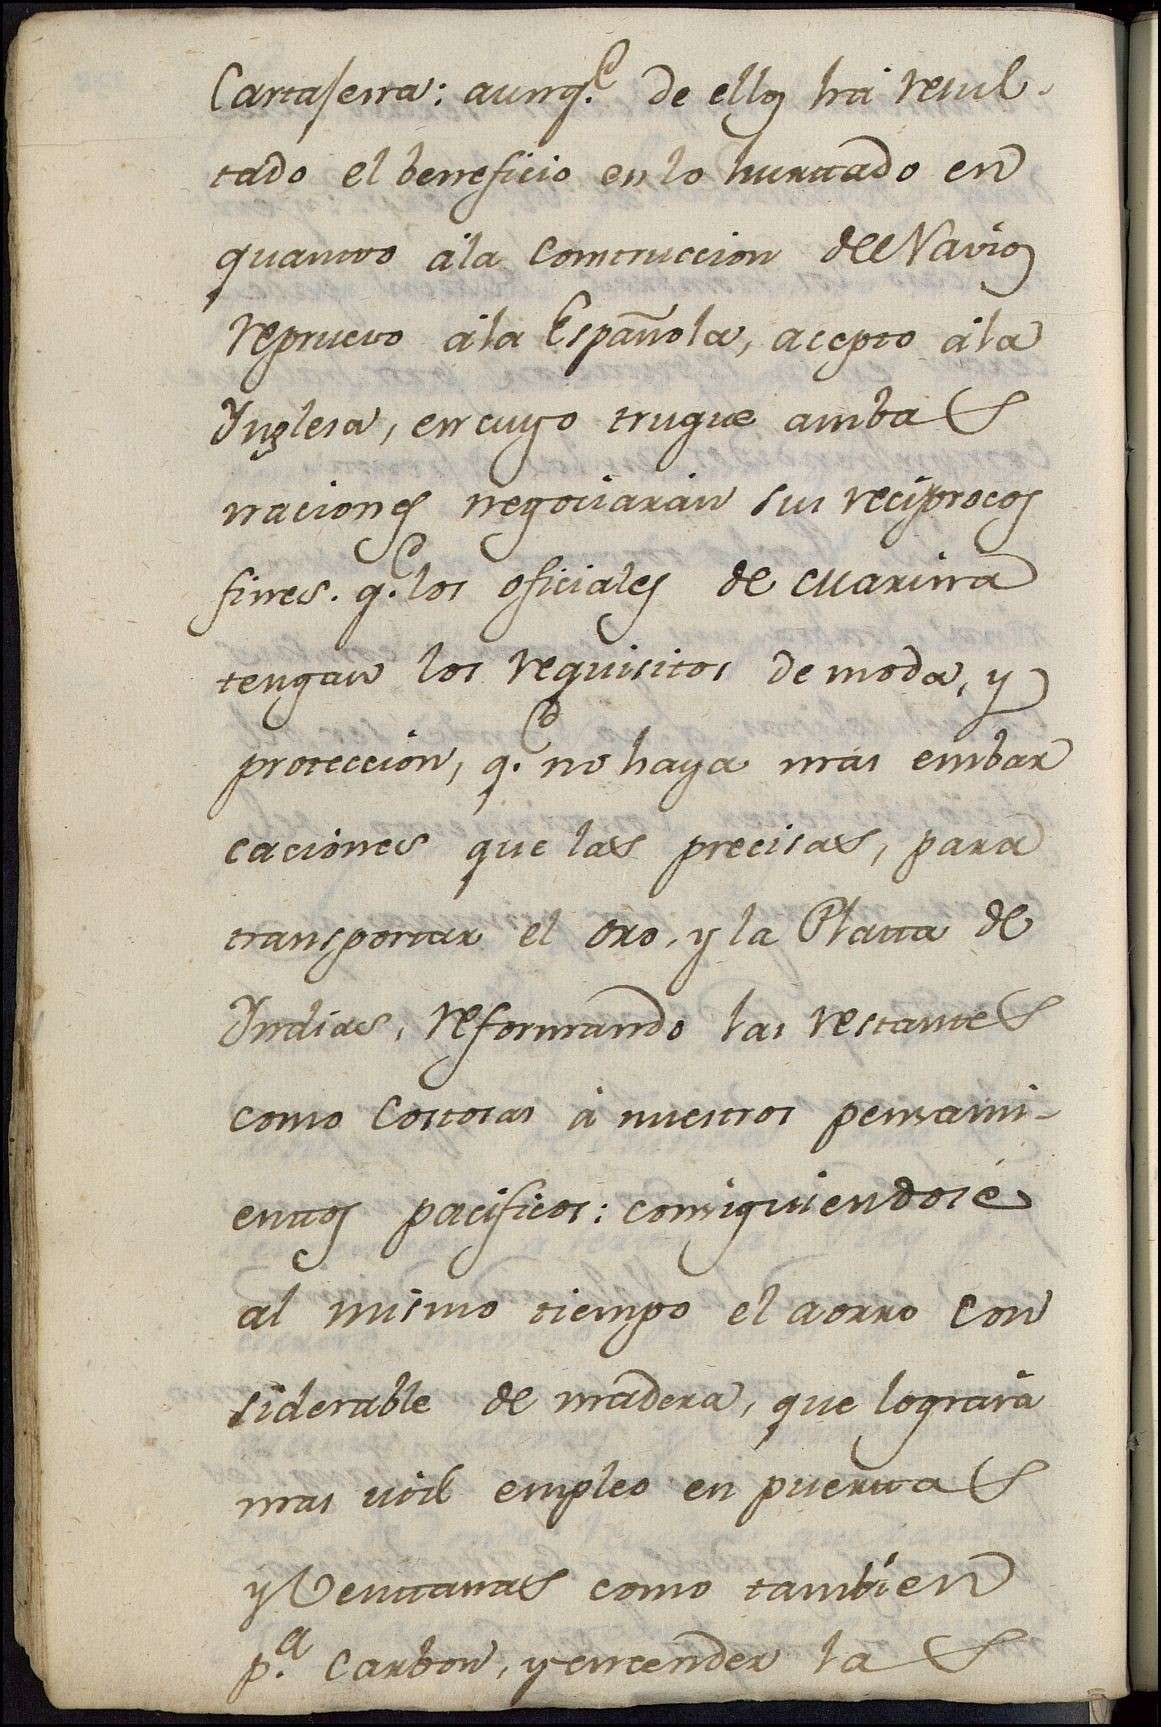 Cartajena: aunq.e de ellos há resul-
tado el beneficio en lo hurtado en
quanto ála Construccion de Navios
repruevo ála Española, acepto ála
Ynglesa, en cuyo truque ambas
naciones negociarán sus reciprocos
fines. q.e los oficiales de Marina
tengan los requisitos de moda, y
proteccion, q.e no haya mas embar
caciones que las precisas, para
transportar el oro, y la Platta de
Yndias, reformando las restantes
como Costosas á nuestros pensami-
enttos pacificos: consiguiendosé
al mismo tiempo el aorro Con
siderable de madera, que lograrà
mas util empleo en puerttas
y Venttanas como tambien
p.a Carbon, y encender las